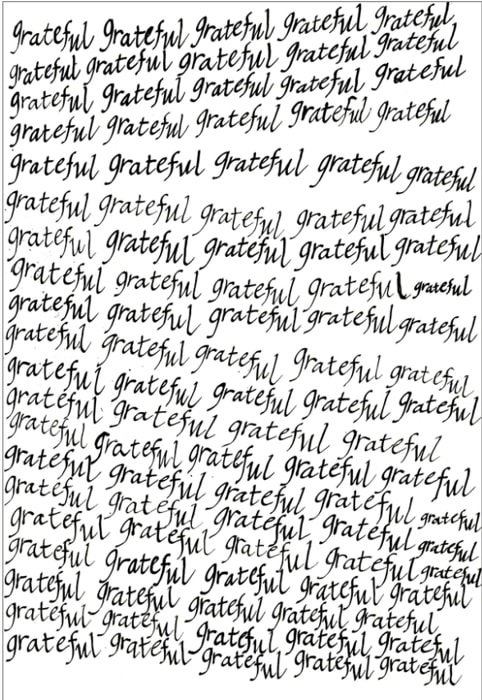 grateful grateful grateful grateful grateful
grateful grateful grateful grateful grateful
grateful grateful grateful grateful grateful
grateful grateful grateful grateful grateful
grateful grateful grateful grateful grateful
grateful grateful grateful grateful grateful
grateful grateful grateful grateful grateful
grateful grateful grateful grateful grateful
grateful grateful grateful grateful grateful
grateful grateful grateful grateful grateful
grateful grateful grateful grateful grateful
grateful grateful grateful grateful
grateful grateful grateful grateful grateful
grateful grateful grateful grateful grateful
grateful grateful grateful grateful grateful
grateful grateful grateful grateful grateful
grateful grateful grateful grateful grateful
grateful grateful grateful grateful grateful
grateful grateful grateful grateful grateful
grateful grateful grateful grateful grateful